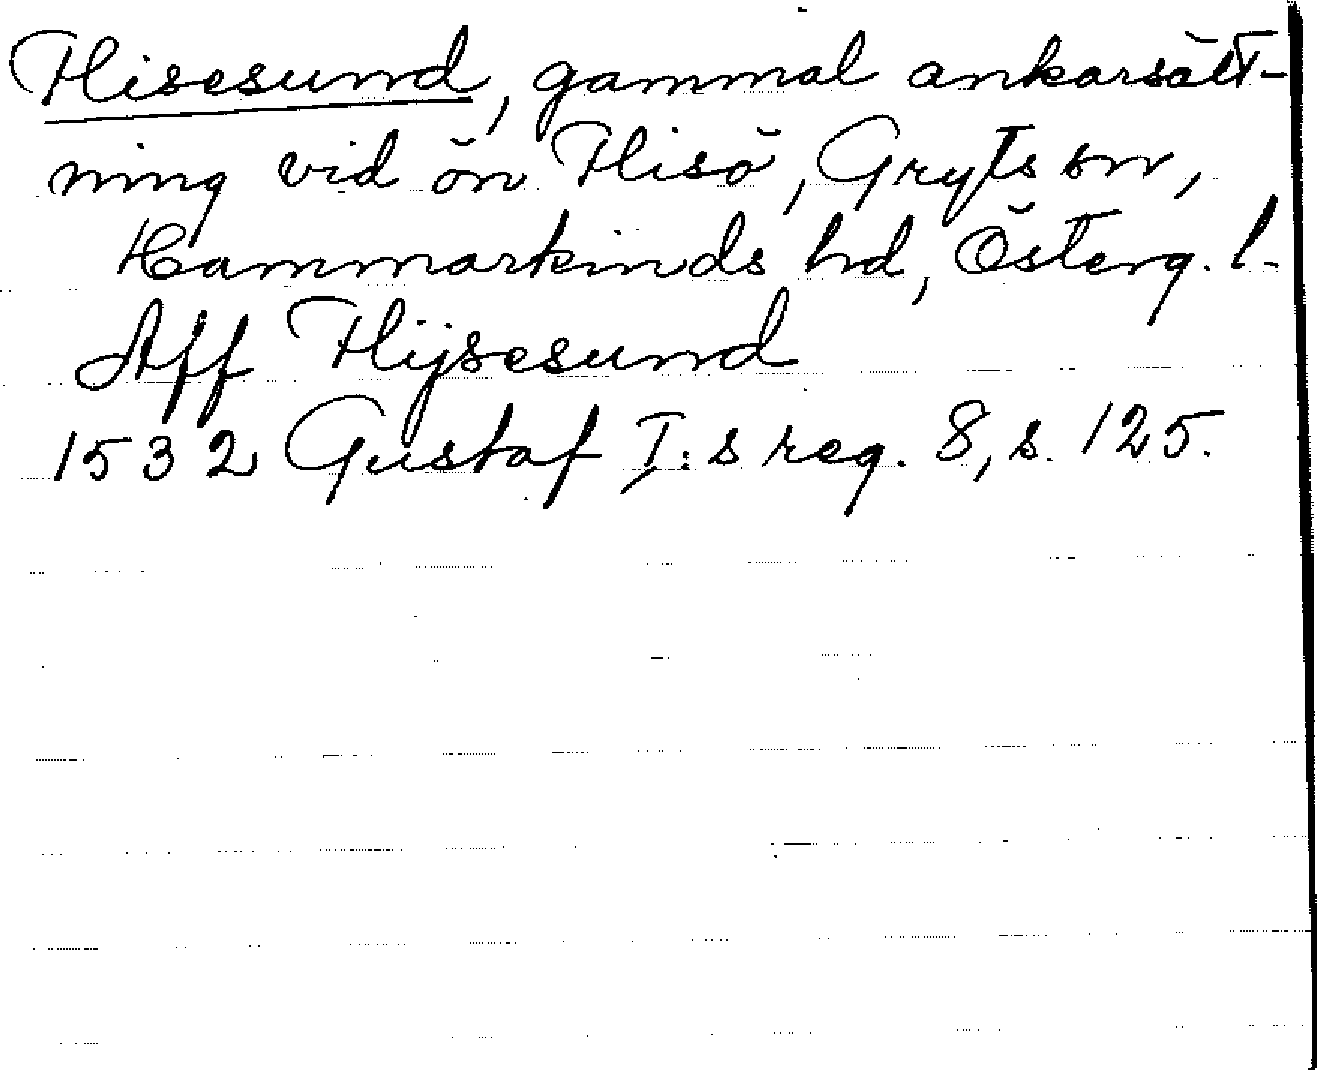 Flisesund, gammal ankarsätt-
ning vid ön Flisö, Gryts sn,
Hammarkinds hd, Österg. l.
Aff Flijsesund
1532 Gustaf I:s reg. 8, s. 125.